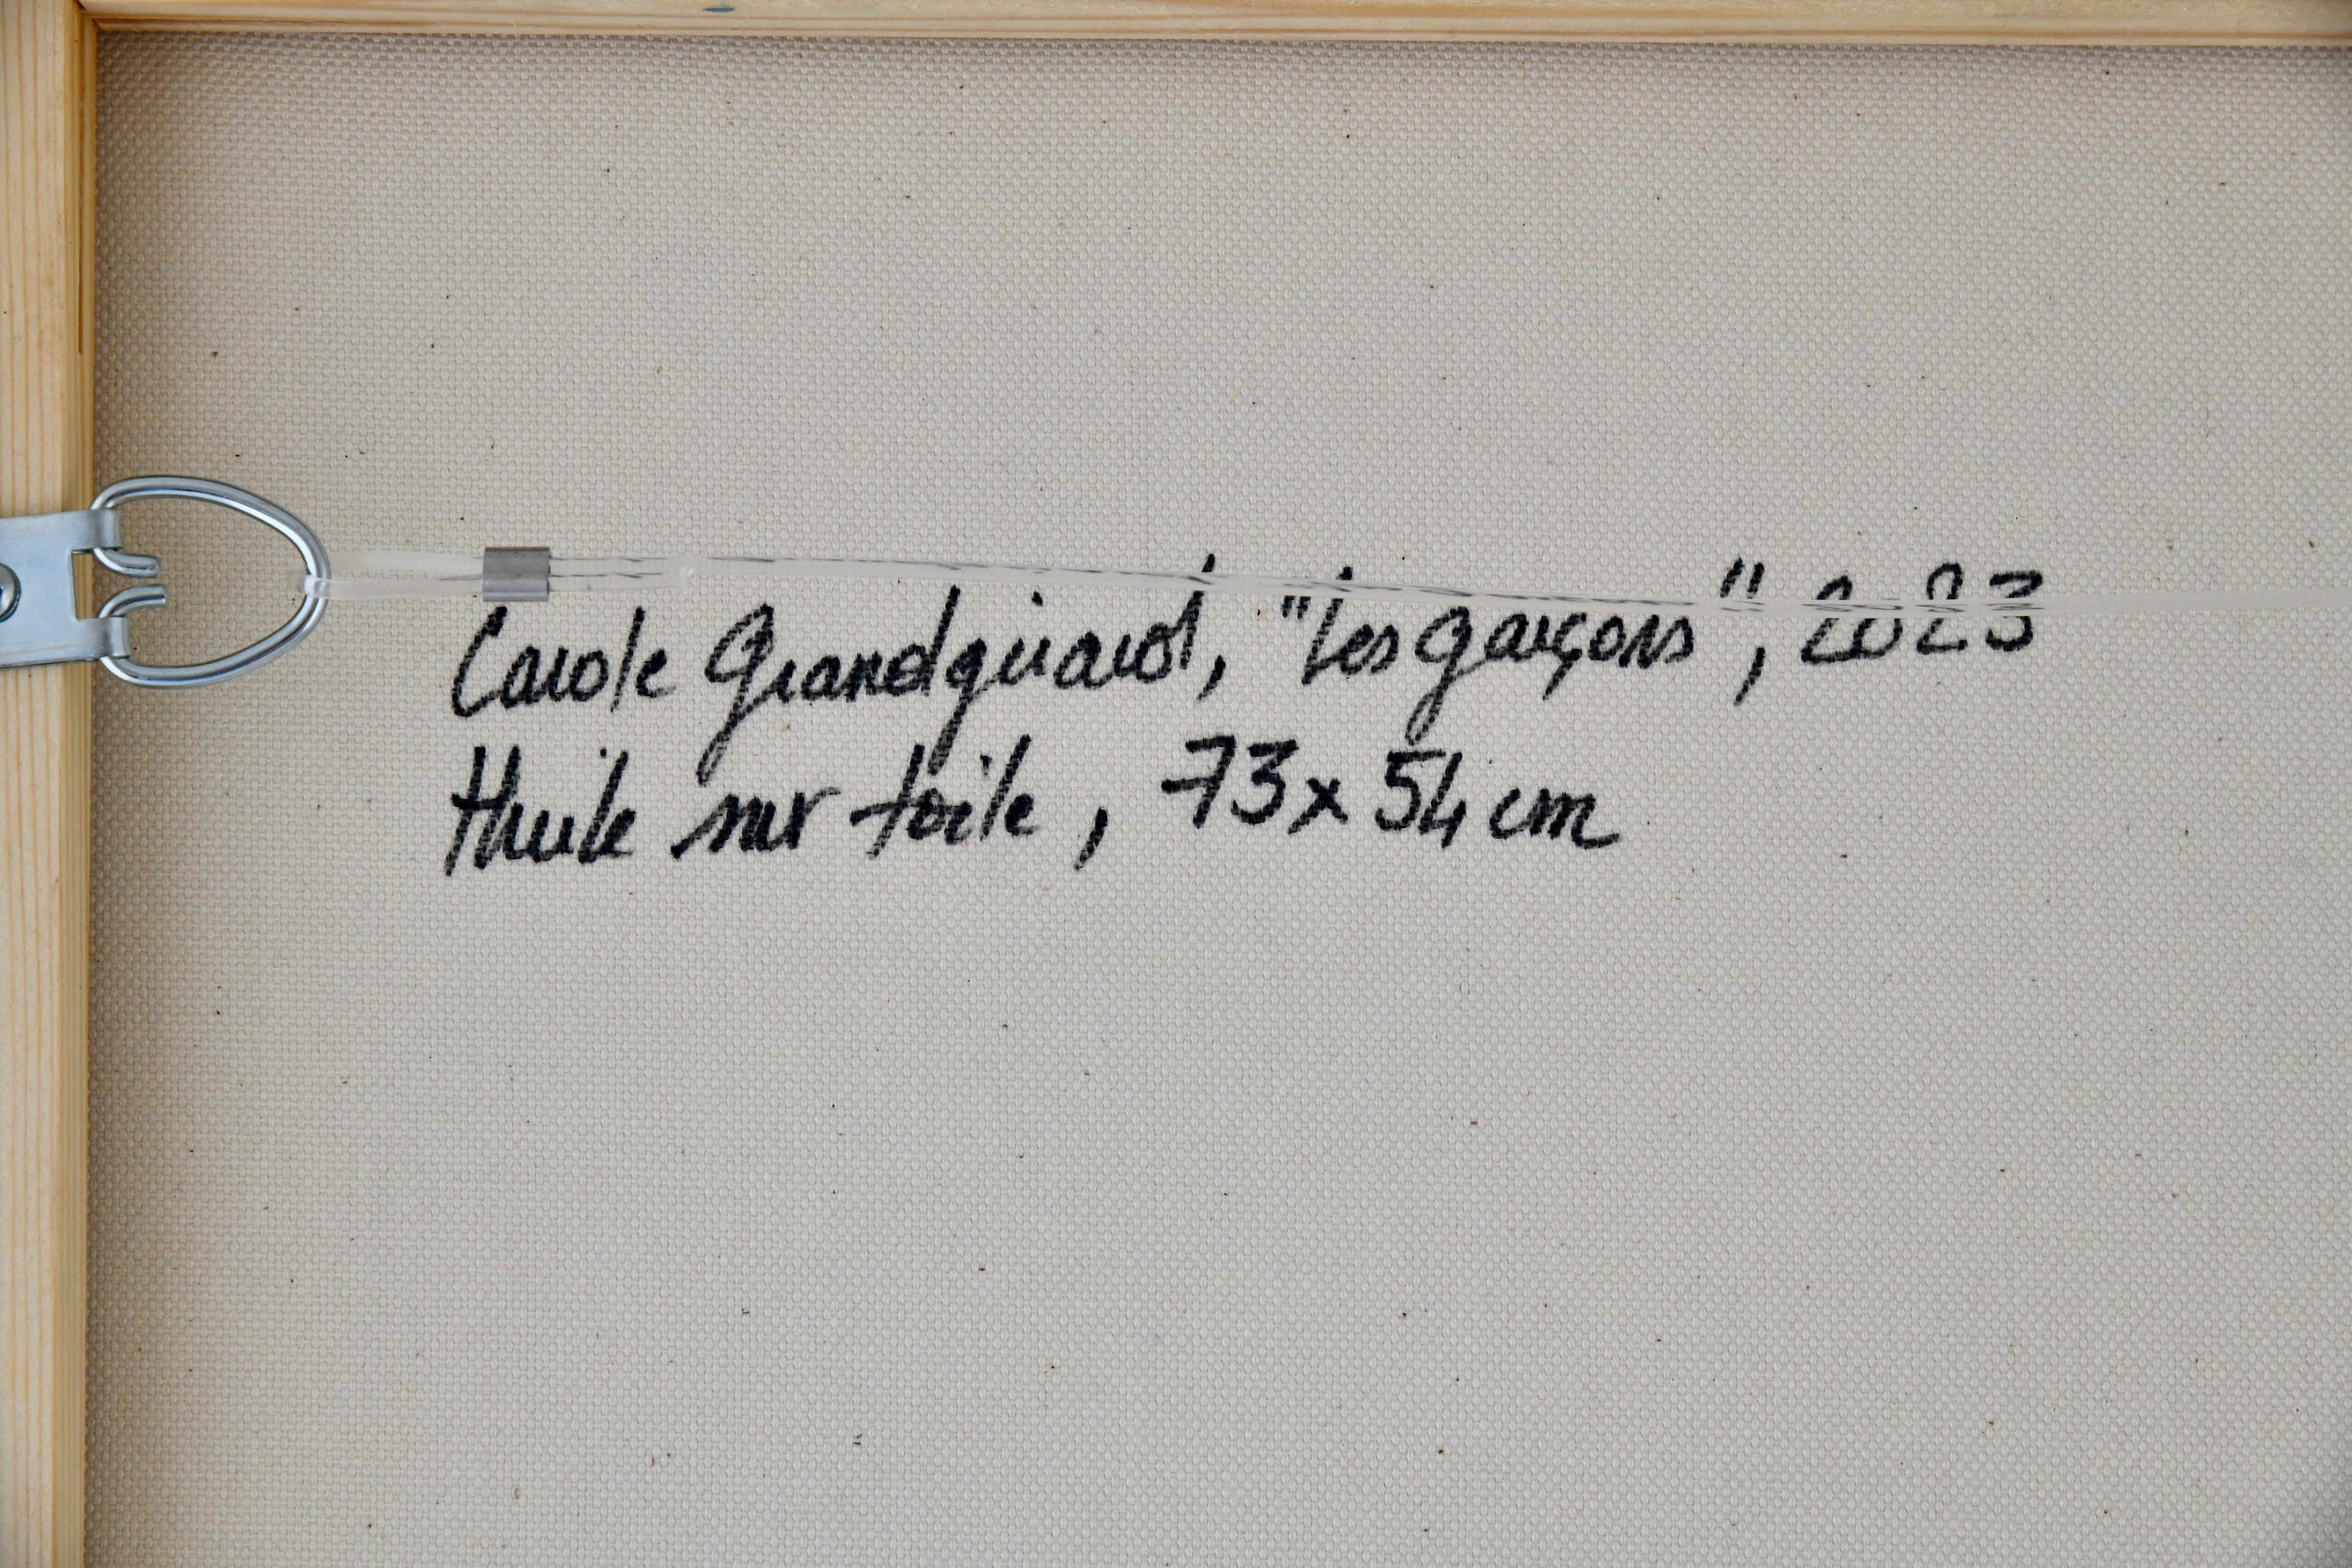 Carole Grandgirard, "Les garçons", 2023
Huile sur toile, 73x54 cm